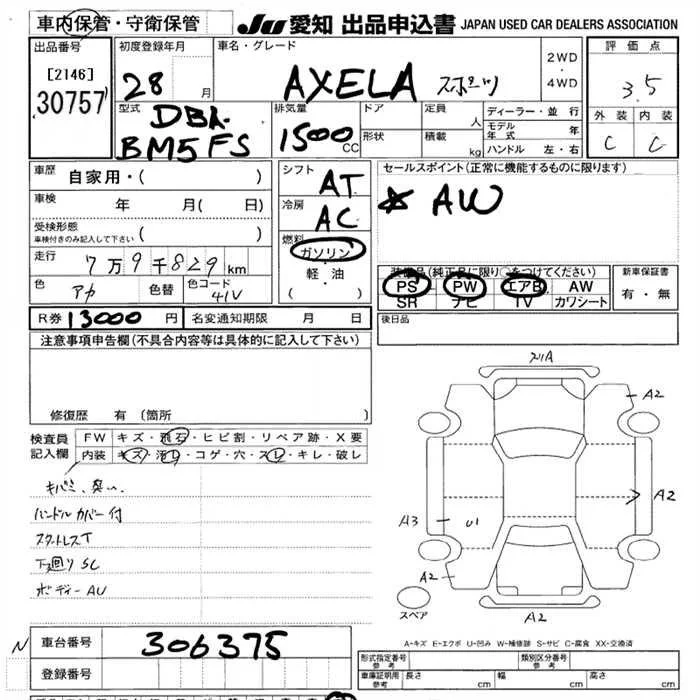 車内保管・守衛保管 JU 愛知 出品申込書 JAPAN USED CAR DEALERS ASSOCIATION
出品番号 初度登録年月 車名・グレード 2WD・4WD 評価点
[2146] 28 月 AXELA スポーツ 3.5
30757 型式 DBA- 排気量 ドア 定員 人 ディーラー・並行 外装 内装
BM5FS 1500 CC 形状 積載 kg モデル年式 年 C C
ハンドル 左・右
車歴 自家用・( ) シフト AT セールスポイント(正常に機能するものに限ります)
車検 年 月( 日) 冷房 AC ☆ AW
受検形態 車検付きのみ記入して下さい ( )
燃料 ガソリン・軽・油 ( )
走行 7万9千829km 装備品(純正品に限り○をつけてください) 新車保証書
色 アカ 色替 色コード 41V PS PW エアB AW 有・無
SR ナビ TV カワシート
R券 13000 円 名変通知期限 月 日 後日品
注意事項申告欄(不具合内容等は具体的に記入して下さい)
修復歴 有 (箇所 )
検査員記入欄 FW キズ・飛石・ヒビ割・リペア跡・X要
内装 キズ・汚レ・コゲ・穴・スレ・キレ・破レ
キバミ、臭い、
ハンドルカバー付
スタットレスT
下廻り SC
ボディーAU
A2
A2
A3 U1
A2
スペア
A2
A-キズ E-エクボ U-凹み W-補修跡 S-サビ C-腐食 XX-交換済
N 車台番号 306375 形式指定番号 参考 類別区分番号 参考
登録番号 車庫証明用 参考 長さ cm 幅 cm 高さ cm